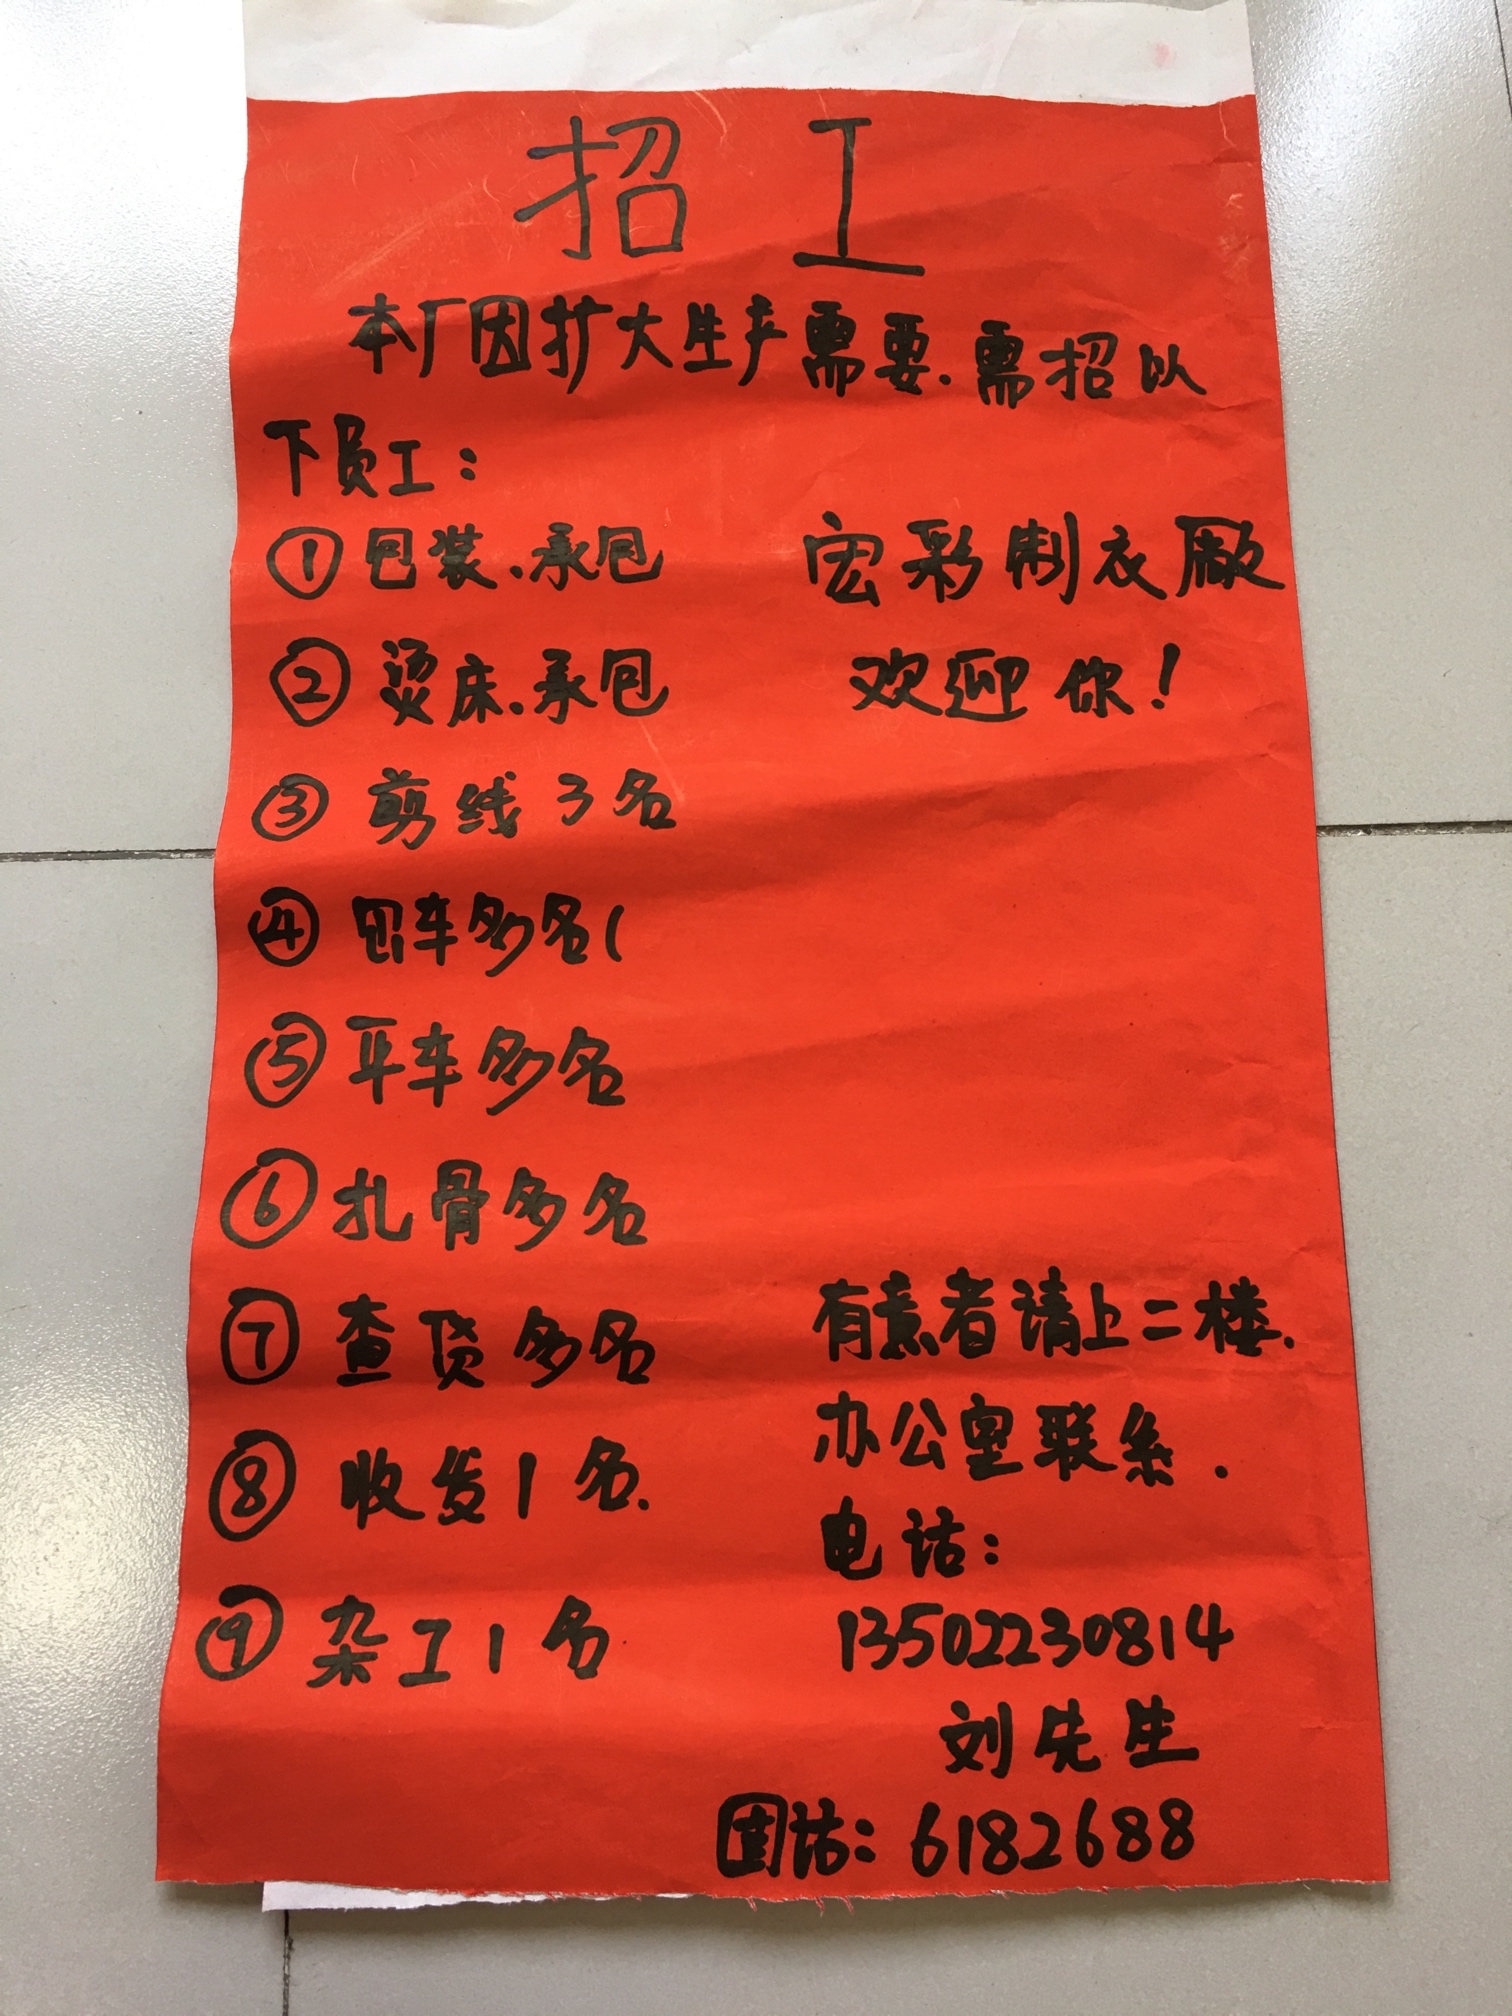 招工
本厂因扩大生产需要.需招以
下员工：
①包装.承包
②烫床.承包
③剪线3名
④包车多名(
⑤平车多名
⑥扎骨多名
⑦查货多名
⑧收发1名.
⑨杂工1名
宏彩制衣厰
欢迎你！
有意者请上二楼.
办公室联系.
电话：
13502230814
刘先生
固话：6182688